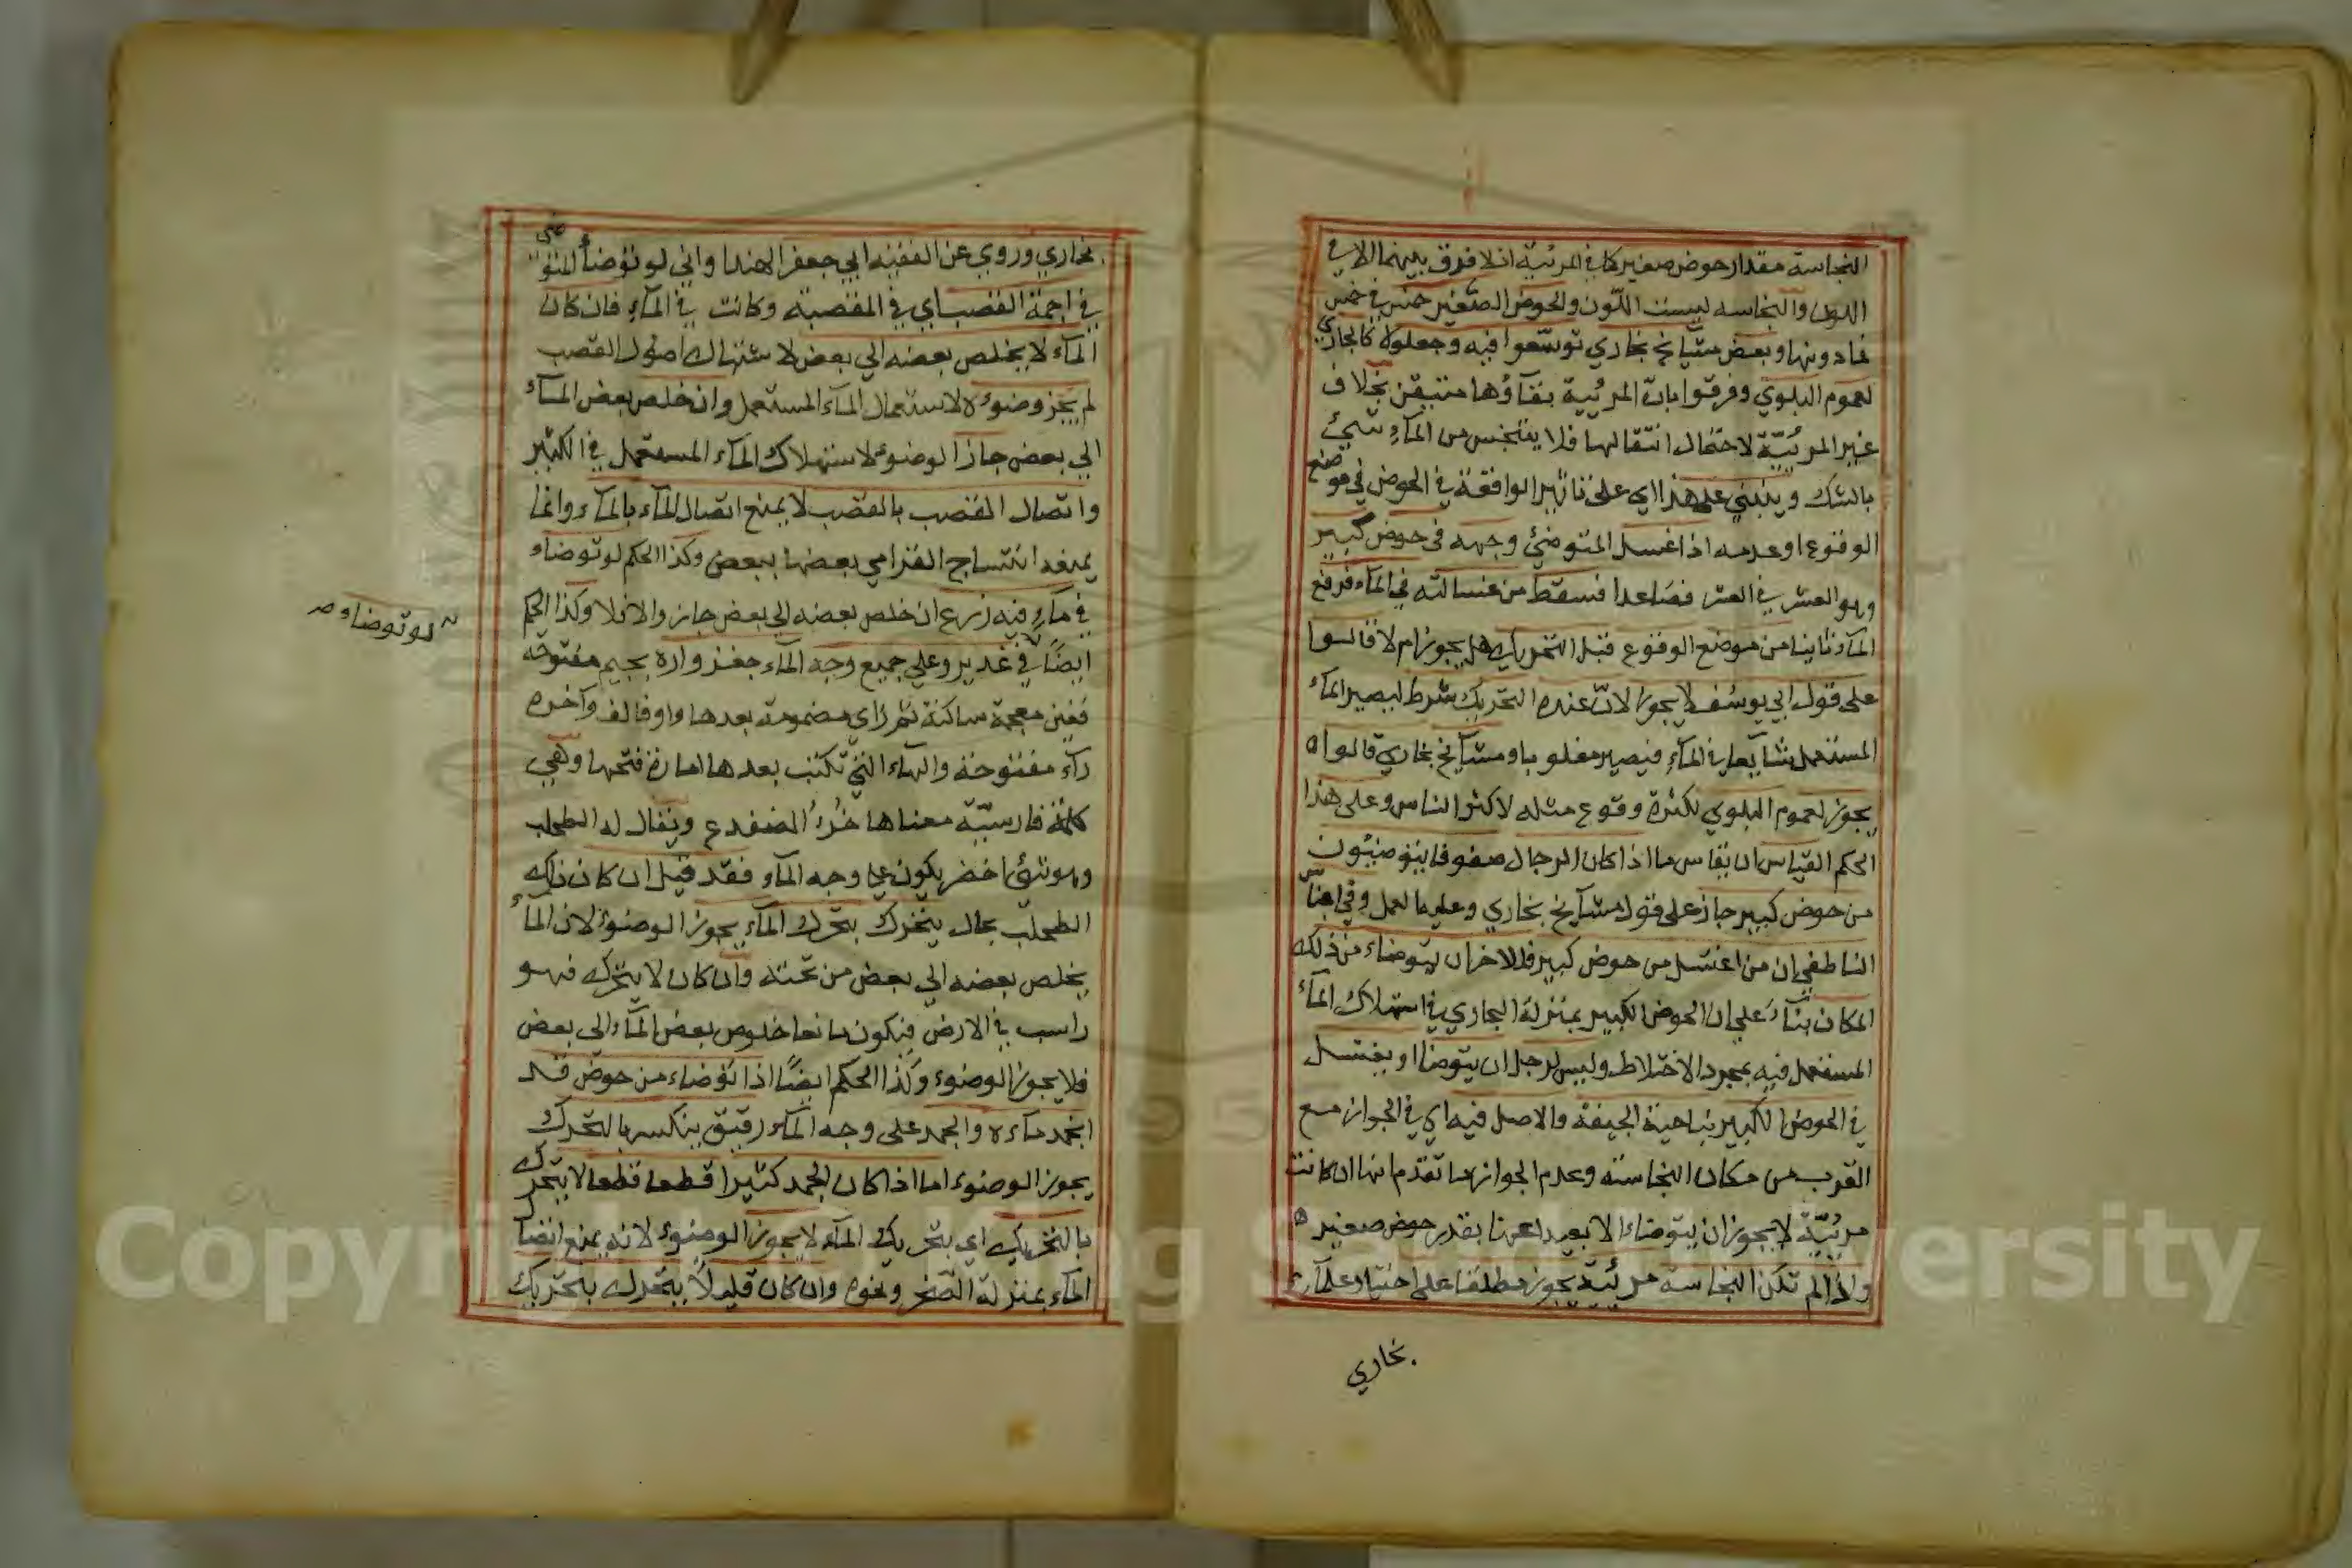 النجاسة مقدار حوض صغير كما في المرئية اذ لا فرق بينهما الا في
اللون والنجاسه ليست اللّون والحوض الصّغير خمس في خمس
فما دونها وبعض مشايخ بخاري توسّعوا فيه وجعلوه كالجاري
لعموم البلوي وفرقوا بانّ المرئية بقآؤها متيقن بخلاف
غير المرئيّة لاحتمال انتقالها فلا يتنجس من المآء شيئ
بالشك وينبني علي هذا اي علي تاثير الواقعة في الحوض في موضع
الوقوع او عدمه اذا غسل المتوضئ وجهه في حوض كبير
وهو العشر في العشر فصاعدا فسقط من غسالته في المآء فرفع
المآء ثانيا من موضع الوقوع قبل التحريك هل يجوز ام لا قالوا
علي قول ابي يوسف لا يجوز لانّ عنده التحريك شرط ليصير المآء
المستعمل شايعا في المآء فيصير مغلوبا ومشآيخ بخاري قالوا
يجوز لعموم البلوي لكثرة وقوع مثله لاكثر الناس وعلي هذا
الحكم القياس ان يقاس ما اذا كان الرجال صفوفا يتوضئون
من حوض كبير جاز علي قول مشآيخ بخاري وعليه العمل وفي اجناس
الناطفي ان من اغتسل من حوض كبير فللاخر ان يتوضاء من ذلك
المكان بنآء علي ان الحوض الكبير بمنزلة الجاري في استهلاك المآء
المستعمل فيه بمجرد الاختلاط وليس لرجل ان يتوضا او يغتسل
في الحوض الكبير بناحية الجيفة والاصل فيه اي في الجواز مع
القرب من مكان النجاسة وعدم الجواز ما تقدم انها ان كانت
مرئيّة لا يجوز ان يتوضاء الا بعيدا عنها بقدر حوض صغير
واذا لم تكن النجاسة مرئية يجوز مطلقا علي اختيار علمآء
بخاري
بخاري وروي عن الفقيه ابي جعفر الهندواني لو توضأ المتوضي
في اجمة القصب اي في المقصبة وكانت في المآء فان كان
المآء لا يخلص بعضه الي بعض لاشتباك اصول القصب
لم يجز وضوءه لاستعمال المآء المستعمل وان خلص بعض المآء
الي بعض جاز الوضوء لاستهلاك المآء المستعمل في الكثير
واتصال القصب بالقصب لا يمنع اتصال المآء بالمآء وانما
يمنعه انتساج بعضها ببعض وكذا الحكم لو توضاء
في مآء فيه زرع ان خلص بعضه الي بعض جاز والا فلا وكذا الحكم
لو توضاء صح
ايضًا في غدير وعلي جميع وجه المآء جغزواره بجيم مفتوحة
فغين معجمة ساكنة ثم زاي مضمومة بعدها واو فالف وآخره
رآء مفتوحة والهاء التي تكتب بعدها امارة فتحها وهي
كلمة فارسيّة معناها خُرْءُ الضفدع ويقال له الطحلب
وهو شئ اخضر يكون علي وجه المآء فقد قيل ان كان ذلك
الطحلب بحال يتحرك بتحرك المآء يجوز الوضوء لان المآء
يخلص بعضه الي بعض من تحته وان كان لا يتحرك فهو
راسب في الارض فيكون مانعا خلوص بعض المآء الي بعض
فلا يجوز الوضوء وكذا الحكم ايضًا اذا توضاء من حوض قد
انجمد مآءه والجمد علي وجه المآء رقيق ينكسر بالتحرك
يجوز الوضوء اما اذا كان الجمد كثيرا قطعا قطعا لا يتحرك
بالتحريك اي بتحريك المآء لا يجوز الوضوء لانه يمنع اتصا
المآء بمنزلة الصّخر ونحوه وان كان قليلًا يتحرك بتحريك
Copyright © King Saud University